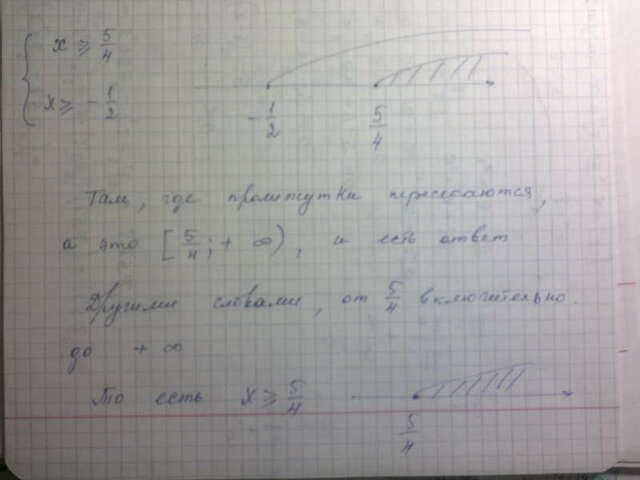 { x ⩾ 5/4
x ⩾ - 1/2
- 1/2
5/4
Там, где промежутки пересекаются,
а это [5/4; + ∞), и есть ответ
Другими словами, от 5/4 включительно
до + ∞
То есть x ⩾ 5/4
5/4